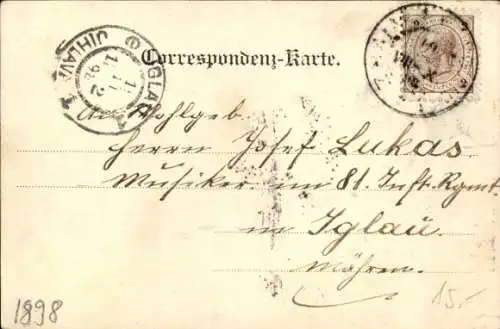 Correspondenz-Karte.
IGLAU
JIHLAVA
An Wohlgeb.
Herrn Josef Lukas
Musiker im 81. Inft. Rgmt.
in Iglau
Mähren.
1898
15.-